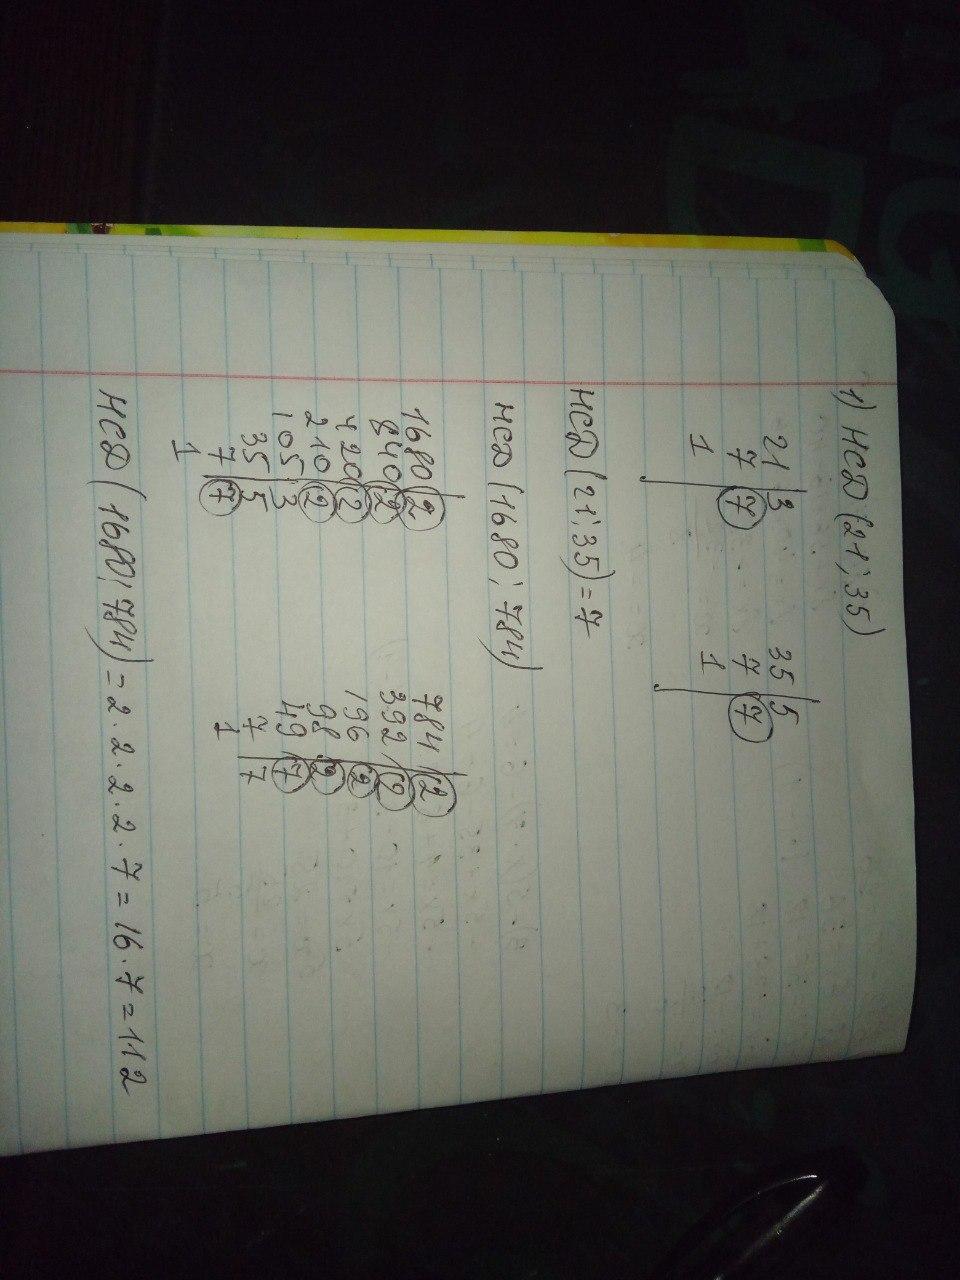 1) НСД (21; 35)
21 | 3 35 | 5
7 | 7 7 | 7
1 1
НСД (21; 35) = 7
НСД (1680; 784)
1680 | 2 784 | 2
840 | 2 392 | 2
420 | 2 196 | 2
210 | 2 98 | 2
105 | 3 49 | 7
35 | 5 7 | 7
7 | 7 1
1
НСД (1680; 784) = 2 · 2 · 2 · 2 · 7 = 16 · 7 = 112